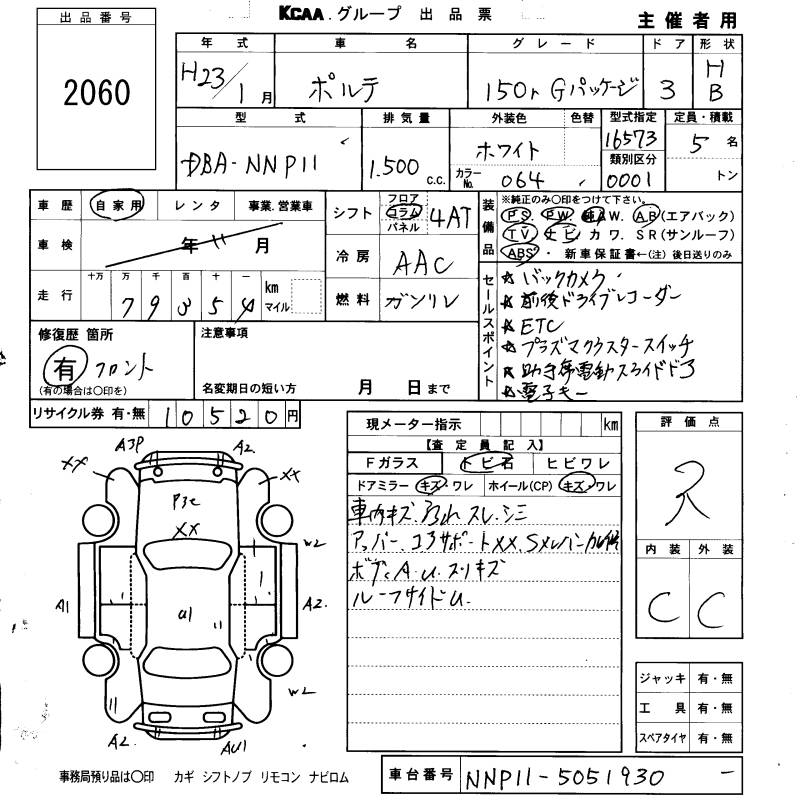 KCAA.グループ 出品票
主催者用
出品番号
2060
年式 車名 グレード ドア 形状
H23/1月 ポルテ 150r Gパッケージ 3 HB
型式 排気量 外装色 色替 型式指定 定員・積載
DBA-NNP11 1.500 c.c. ホワイト 16573 5名
カラーNo. 064 類別区分 0001 トン
車歴 自家用 レンタ 事業.営業車
シフト フロア コラム パネル 4AT
装備品 ※純正のみ○印をつけて下さい。
PS PW 純AW. AB(エアバック)
TV ナビ カワ. SR(サンルーフ)
ABS・新車保証書←(注)後日送りのみ
車検 年 月
冷房 AAC
走行 十万 万 千 百 十 一 km マイル
79354
燃料 ガソリン
セールスポイント
★バックカメラ
★前後ドライブレコーダー
★ETC
★プラズマクラスタースイッチ
★助手席電動スライドドア
★電子キー
修復歴 箇所
有 フロント
(有の場合は○印を)
注意事項
名変期日の短い方 月 日まで
リサイクル券 有・無 10520円
現メーター指示 km
【査定員記入】
Fガラス トビ石 ヒビワレ
ドアミラー キズ・ワレ ホイール(CP) キズ・ワレ
車内キズ. ヨゴレ スレ.シミ
アッパー.コアサポートXX.
ボディA.U.スリキズ
ルーフサイドU.
評価点
内装 外装
C C
A3P A2
XX XX
P3C
XX
W2
A1 U1 A2
W2
A2 AU1
ジャッキ 有・無
工具 有・無
スペアタイヤ 有・無
事務局預り品は○印 カギ シフトノブ リモコン ナビロム
車台番号 NNP11-5051930